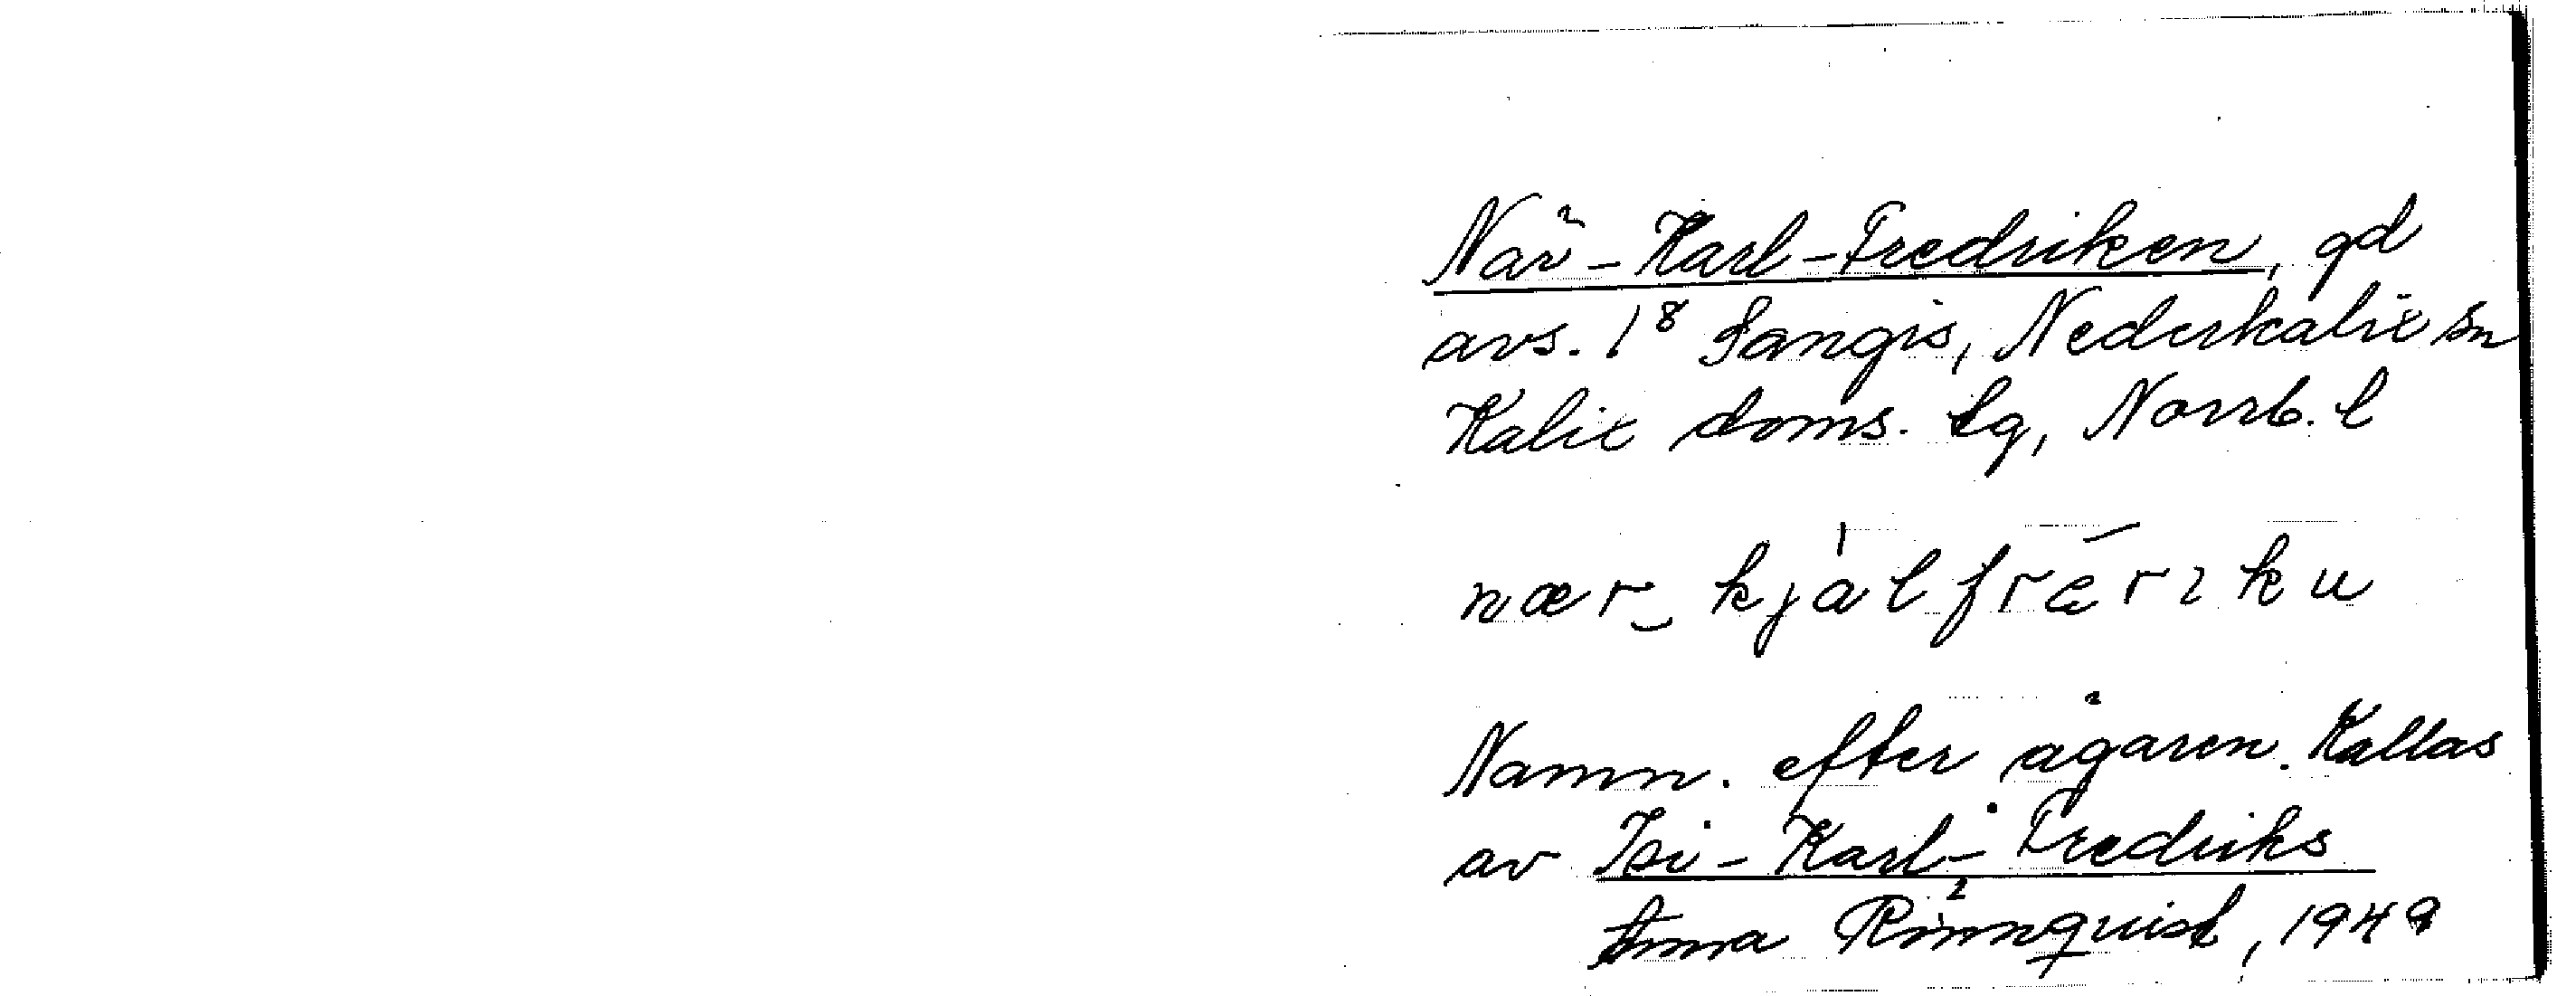 När-Karl-Fredriken, gd
avs. 1⁸ Sangis, Nederkalix sn
Kalix doms. tg, Norrb. l
nær_ kjàlfrǽrɩku
Namn. efter ägaren. Kallas
av Isi-Karl-Fredriks
Anna Rönnquist, 1949